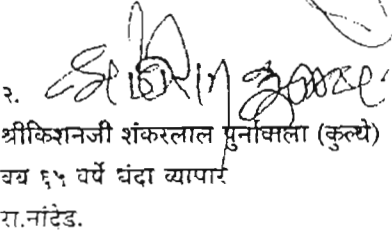 २.
श्रीकिशनजी शंकरलाल पुर्नावाला (कुल्थे)
वय ६५ वर्षे धंदा व्यापार
रा.नांदेड.